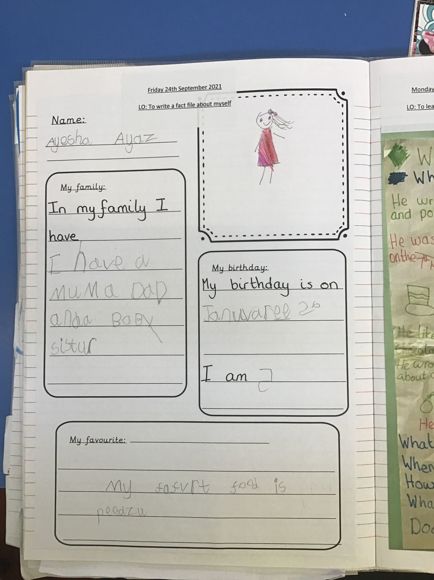 Friday 24th September 2021
LO: To write a fact file about myself
Name:
Ayesha Ayaz
My family:
In my family I
have
I have a
MuMa DaD
anda BaBY
situr
My birthday:
My birthday is on
Januvaree 26
I am
My favourite:
My fafvrt food is
peadzu
Monday
LO: To lea
W
Wh
He wr
and po
He was
on the
He
What
When
How
Wha